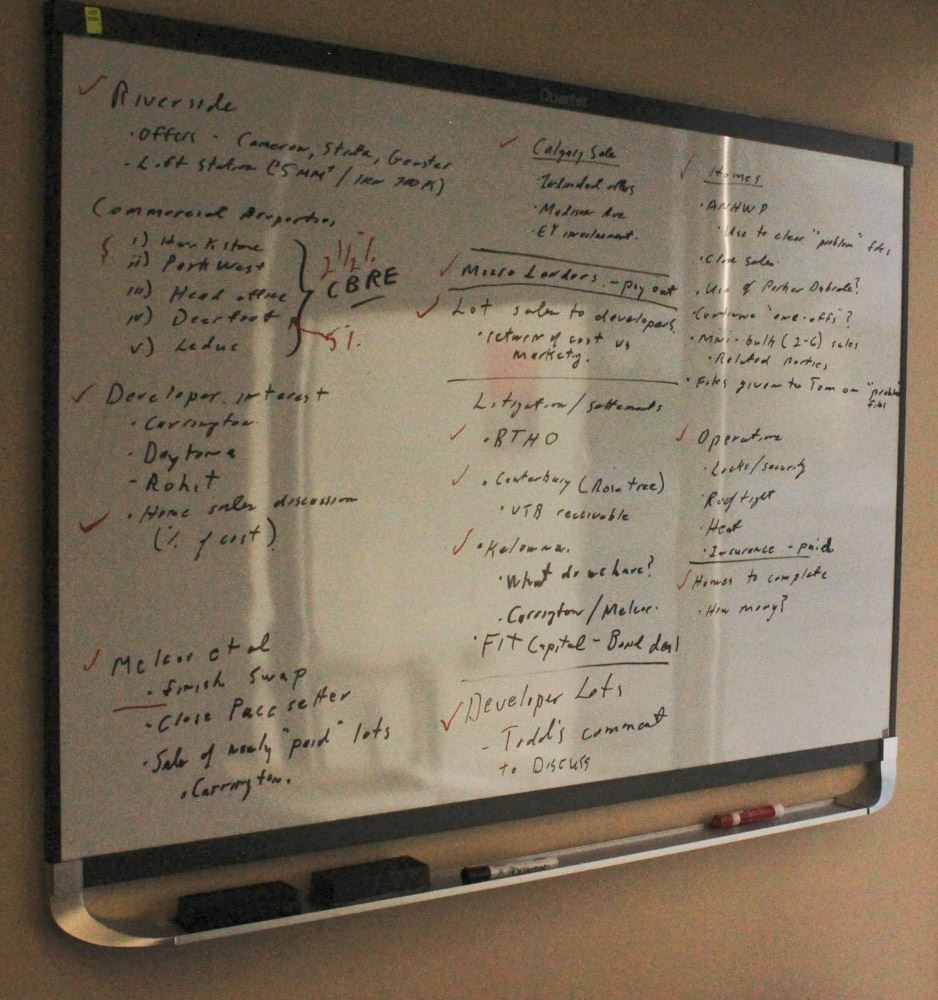 Quartet
Riverside
• Offers - Cameron, Strata, Genstar
- Lift Station (5MM / 700K)
Commercial Properties
i) Hawkstone
ii) Parkwest
iii) Head office
iv) Deerfoot
v) Leduc
2 1/2 %
CBRE
5%
Developer interest
• Carrington
• Daytona
- Rohit
• Home sales discussion
(% of cost)
Melcor et al
• finish swap
• Close Pacesetter
• Sale of newly "paid" lots
• Carrington.
Calgary Sale
• Madison Ave
• EY involvement.
Micro Lenders - pay out
Lot sales to developers.
• return of cost vs
marketing.
Litigation/settlements
• RTHO
• Canterbury (Rosetree)
• VTB receivable
• Kelowna.
• What do we have?
• Carrington/Melcor.
• FIT Capital - Bond deal
Developer Lots
- Todd's comment
to Discuss
Homes
• ANHWP
• Use to clear "problem" files
• Close sales
• Use of Parker ?
• Continue "one-offs"?
• Mini-bulk (2-6) sales
• Related parties
• Files given to Tom on "problem
files
Operations
• Locks/security
• Roof tight
• Heat
• Insurance - paid
Homes to complete
• How many?